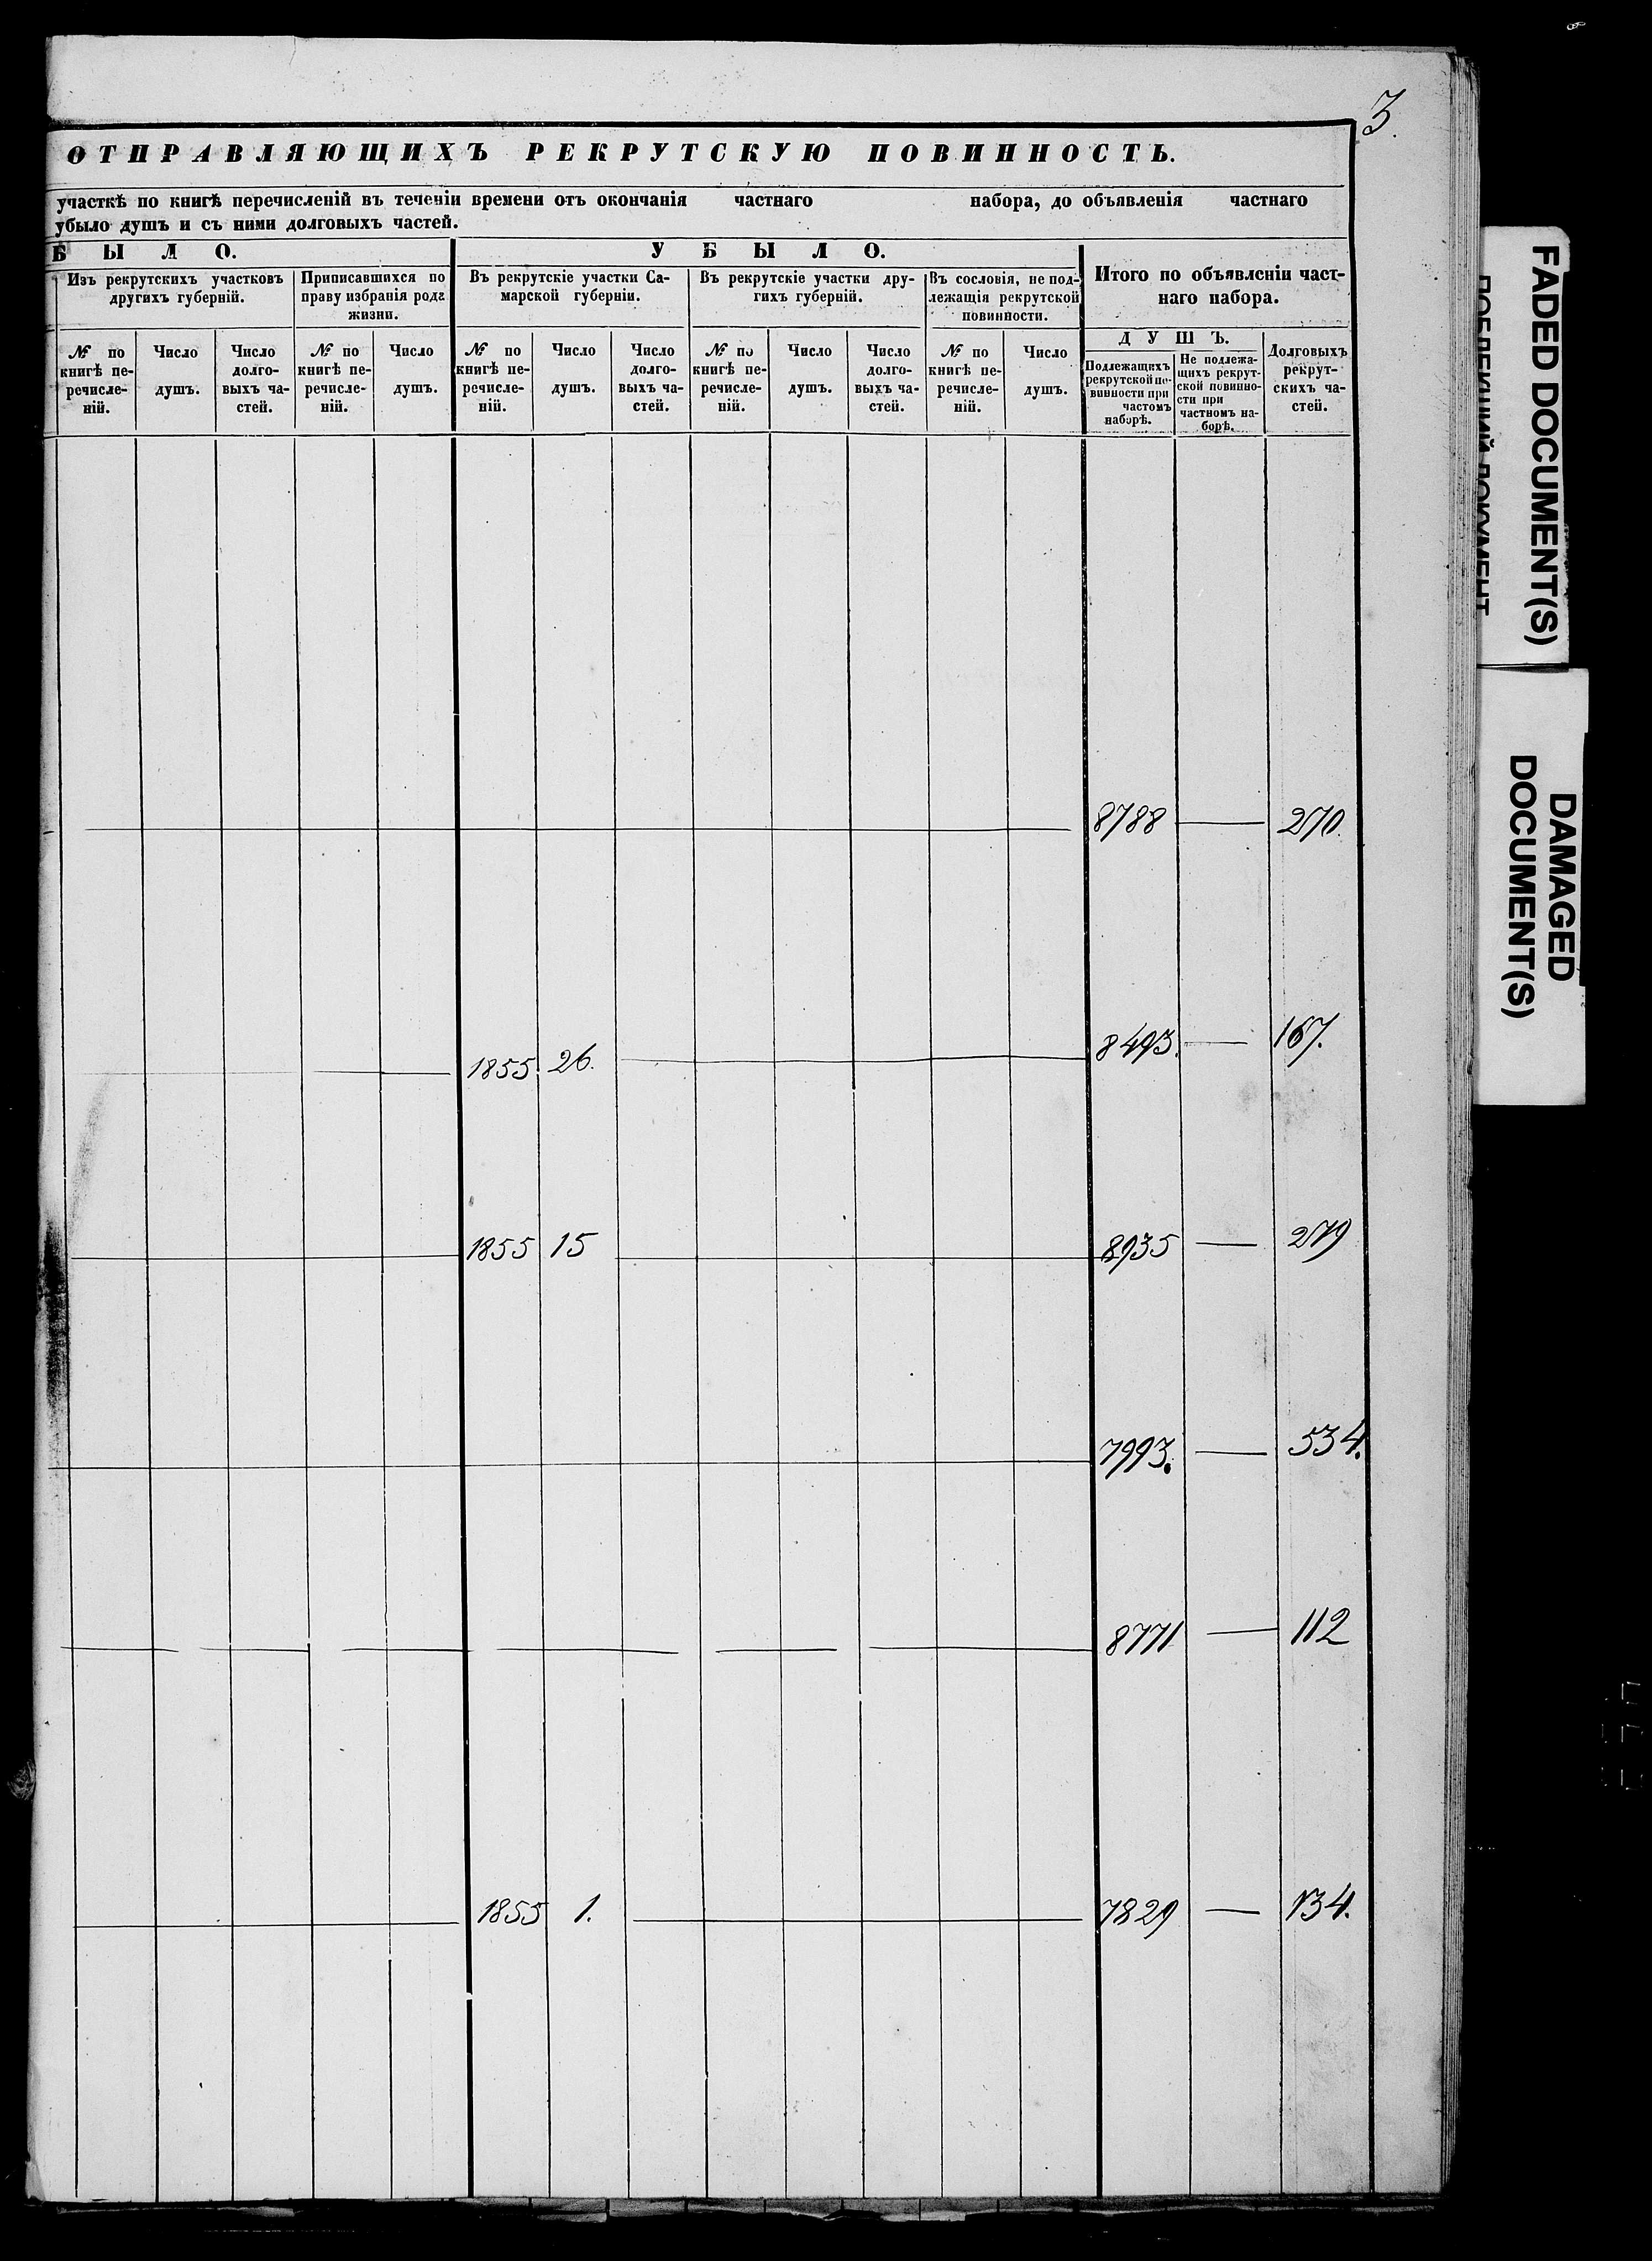 3.
ОТПРАВЛЯЮЩИХЪ РЕКРУТСКУЮ ПОВИННОСТЬ.
участкѣ по книгѣ перечисленій въ теченіи времени отъ окончанія частнаго набора, до объявленія частнаго
убыло душъ и съ ними долговыхъ частей.
Б Ы Л О. У Б Ы Л О.
Изъ рекрутскихъ участковъ
другихъ губерній.
Приписавшихся по
праву избранія рода
жизни.
Въ рекрутскіе участки Са-
марской губерніи.
Въ рекрутскіе участки дру-
гихъ губерній.
Въ сословія, не под-
лежащія рекрутской
повинности.
Итого по объявленіи част-
наго набора.
Д У Ш Ъ.
№ по
книгѣ пе-
речисле-
ній.
Число
душъ.
Число
долго-
выхъ ча-
стей.
№ по
книгѣ пе-
речисле-
ній.
Число
душъ.
№ по
книгѣ пе-
речисле-
ній.
Число
душъ.
Число
долго-
выхъ ча-
стей.
№ по
книгѣ пе-
речисле-
ній.
Число
душъ.
Число
долго-
выхъ ча-
стей.
№ по
книгѣ пе-
речисле-
ній.
Число
душъ.
Подлежащихъ
рекрутской по-
винности при
частомъ
наборѣ.
Не подлежа-
щихъ рекрут-
ской повинно-
сти при
частномъ на-
борѣ.
Долговыхъ
рекрут-
скихъ ча-
стей.
8788 — 270.
1855. 26. 8493. — 167.
1855 15 8935 — 279
7993. — 534.
8771 — 112
1855 1. 7829 — 134.
FADED DOCUMENT(S)
DAMAGED
DOCUMENT(S)